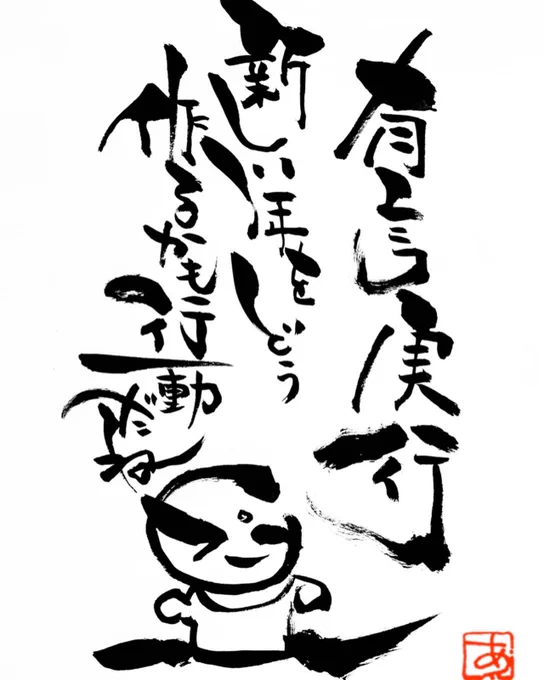 有言実行
新しい年をどう
作るかも行動
だね
あ